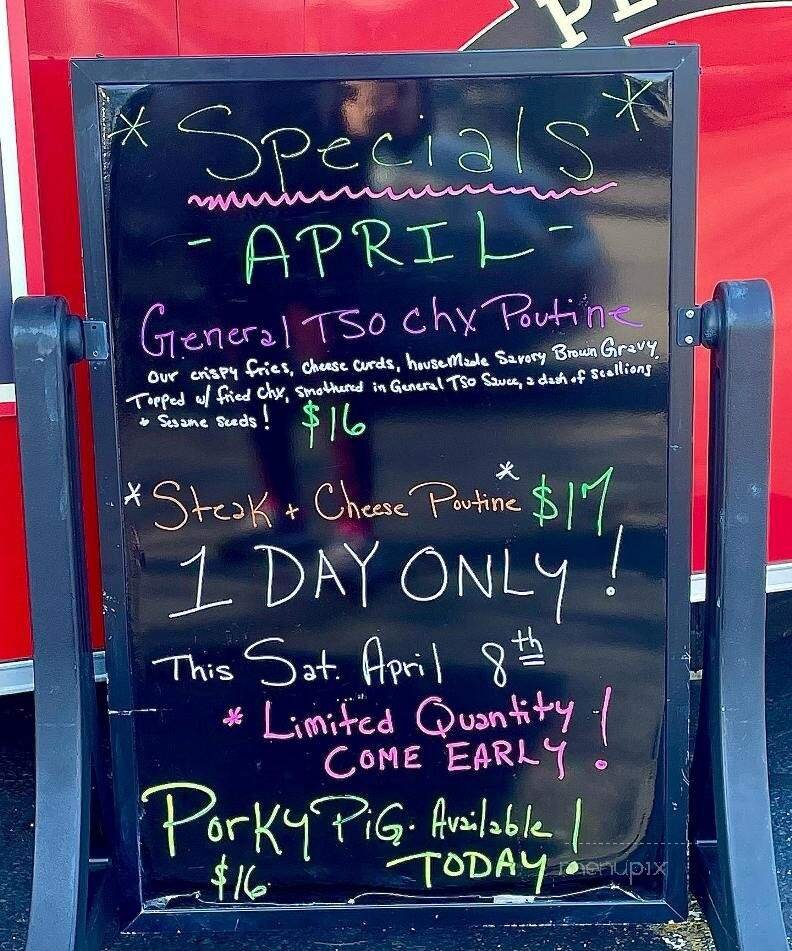 * Specials *
- APRIL -
General TSO Chx Poutine
Our crispy fries, cheese curds, houseMade Savory Brown Gravy
Topped w/ fried chx, smothered in General TSO Sauce, a dash of scallions
+ Sesame Seeds! $16
*Steak + Cheese Poutine* $17
1 DAY ONLY!
This Sat. April 8th
* Limited Quantity!
COME EARLY!
Porky Pig. Available!
$16 TODAY
menupix